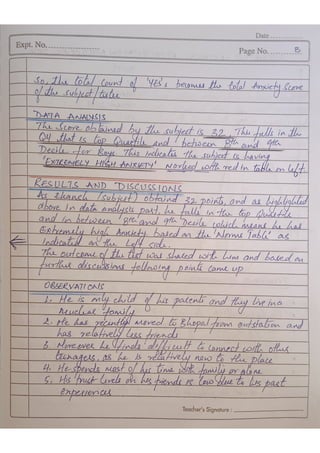 Date
Expt. No.
Page No. B
So, the total count of 'YES', becomes the total Anxiety Score
of the subject/testee
DATA ANALYSIS
The Score obtained by the subject is 32. This falls in the
Q4 that is top Quartile and between 8th and 9th
Decile for Boys. This indicates the subject is having
'EXTREMELY HIGH ANXIETY' Marked with red in table on left.
RESULTS AND DISCUSSIONS
As (Subject) obtained 32 points, and as highlighted
above in data analysis part, he falls in the top Quartile
and in between 8th and 9th Decile which means he has
Extremely high Anxiety based on the 'Norms Table' as
indicated on the Left side.
The outcome of the test was shared with him and based on
further discussions following points came up
OBSERVATIONS
1. He is only child of his parents and they live in a
Nuclear family
2. He has recently moved to Bhopal from outstation and
has relatively less friends
3. Moreover he finds difficult to connect with other
teenagers, as he is relatively new to the place
4. He spends most of his time with family or alone
5. His trust levels on his friends is low due to his past
experiences
Teacher's Signature :